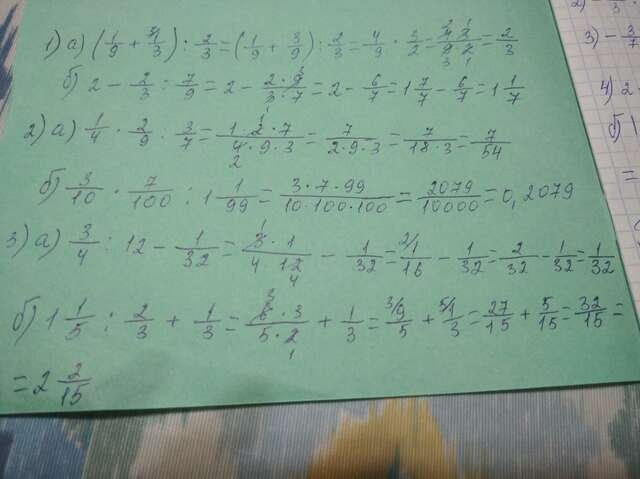 1) а) (1/9 + 3\1/3) : 2/3 = (1/9 + 3/9) : 2/3 = 4/9 · 3/2 = 4·3/9·2 = 2/3
б) 2 - 2/3 : 7/9 = 2 - 2·9/3·7 = 2 - 6/7 = 1 7/7 - 6/7 = 1 1/7
2) а) 1/4 · 2/9 : 3/7 = 1·2·7/4·9·3 = 7/2·9·3 = 7/18·3 = 7/54
б) 3/10 · 7/100 : 1 1/99 = 3·7·99/10·100·100 = 2079/10000 = 0,2079
3) а) 3/4 : 12 - 1/32 = 3·1/4·12 - 1/32 = 2\1/16 - 1/32 = 2/32 - 1/32 = 1/32
б) 1 1/5 : 2/3 + 1/3 = 6·3/5·2 + 1/3 = 3\9/5 + 5\1/3 = 27/15 + 5/15 = 32/15 =
= 2 2/15
2)
3) - 3/7
4) 2 ·
б) 1
=